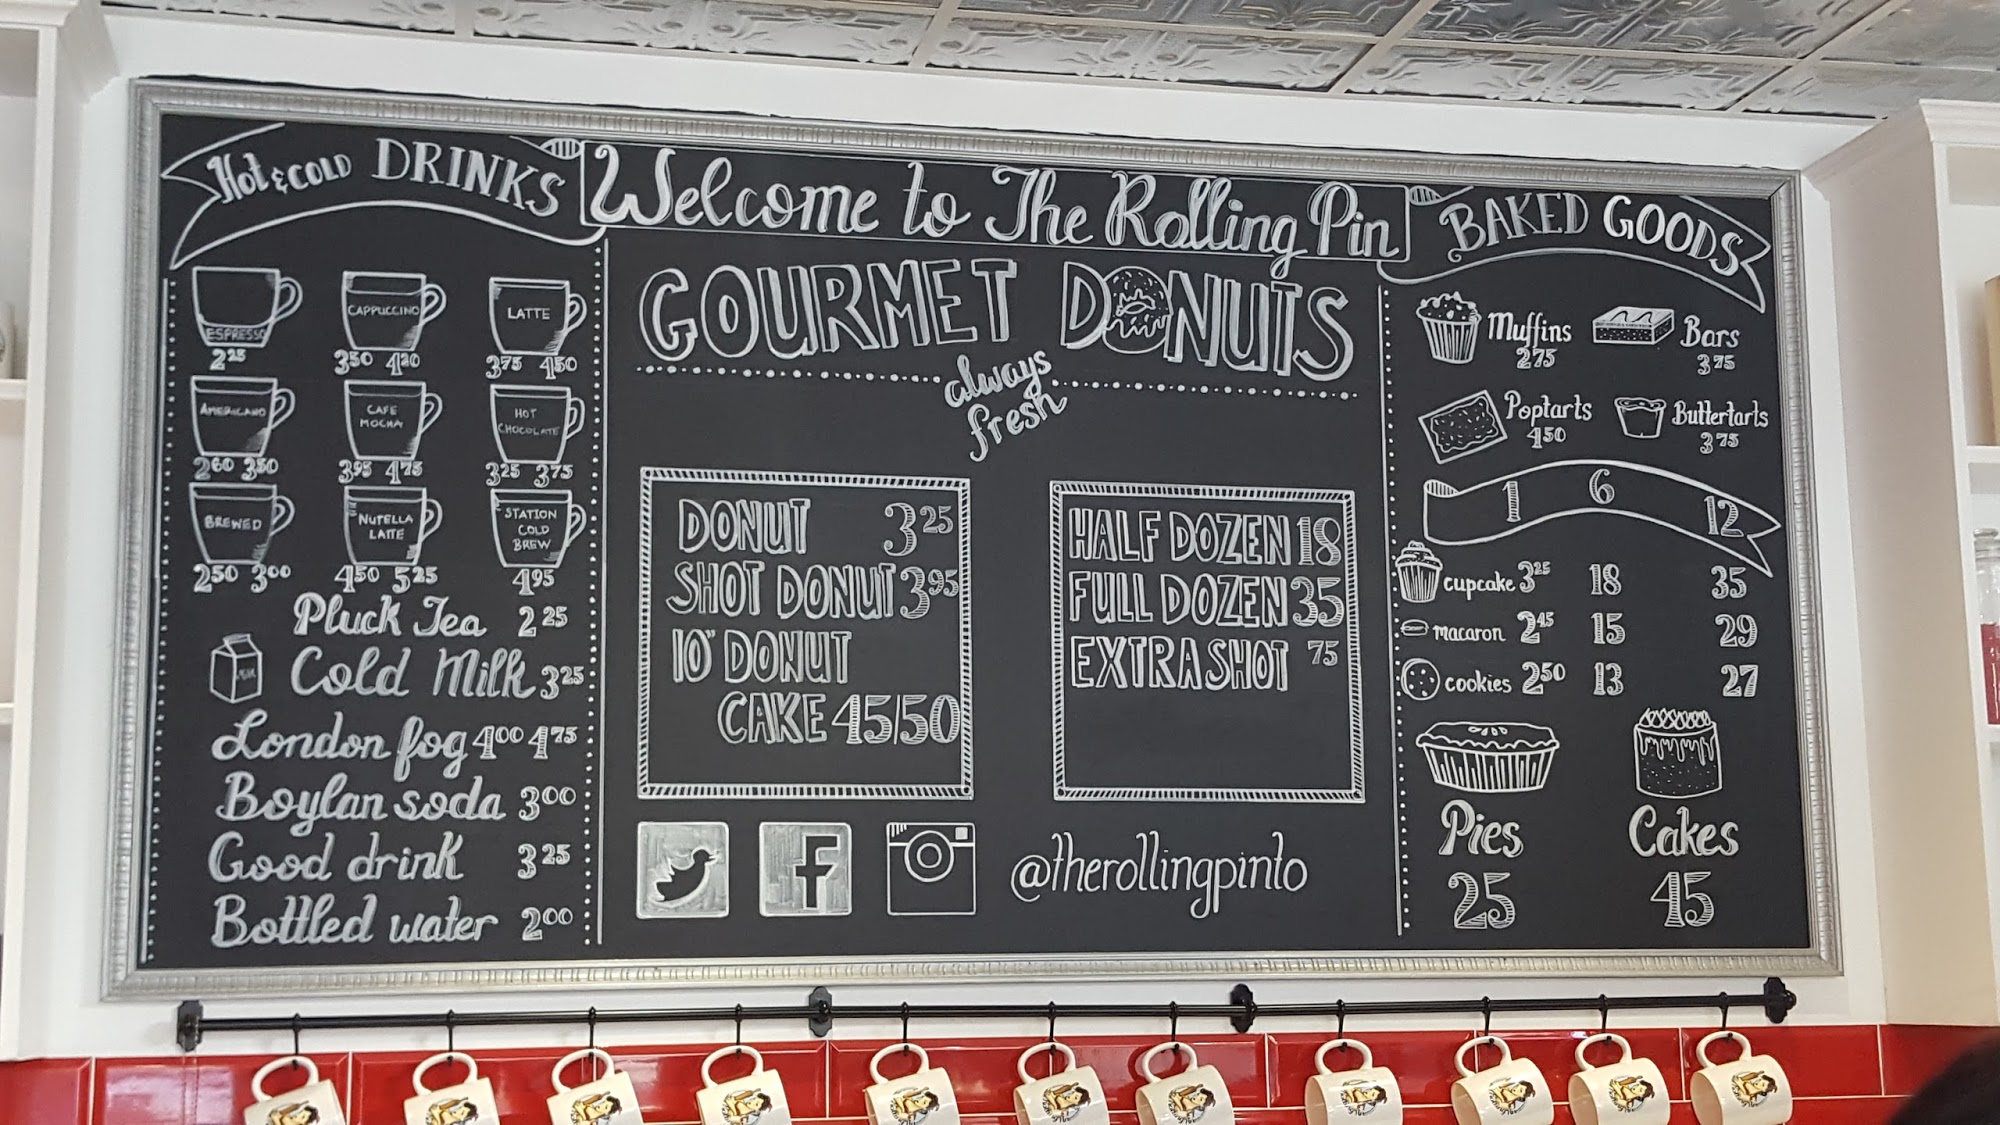 Hot & COLD DRINKS
ESPRESSO
2 25
CAPPUCCINO
3 50 4 20
LATTE
3 75 4 50
AMERICANO
2 60 3 50
CAFE
MOCHA
3 95 4 75
HOT
CHOCOLATE
3 25 3 75
BREWED
2 50 3 00
NUTELLA
LATTE
4 50 5 25
STATION
COLD
BREW
4 95
Pluck Tea 2 25
MILK
Cold Milk 3 25
London fog 4 00 4 75
Boylan soda 3 00
Good drink 3 25
Bottled water 2 00
Welcome to The Rolling Pin
GOURMET DONUTS
always
fresh
DONUT 3 25
SHOT DONUT 3 95
10" DONUT
CAKE 45/50
HALF DOZEN 18
FULL DOZEN 35
EXTRA SHOT 75
f
@therollingpinto
BAKED GOODS
Muffins
2 75
Bars
3 75
Poptarts
4 50
Buttertarts
3 75
1 6 12
cupcake 3 25 18 35
macaron 2 45 15 29
cookies 2 50 13 27
Pies
25
Cakes
45